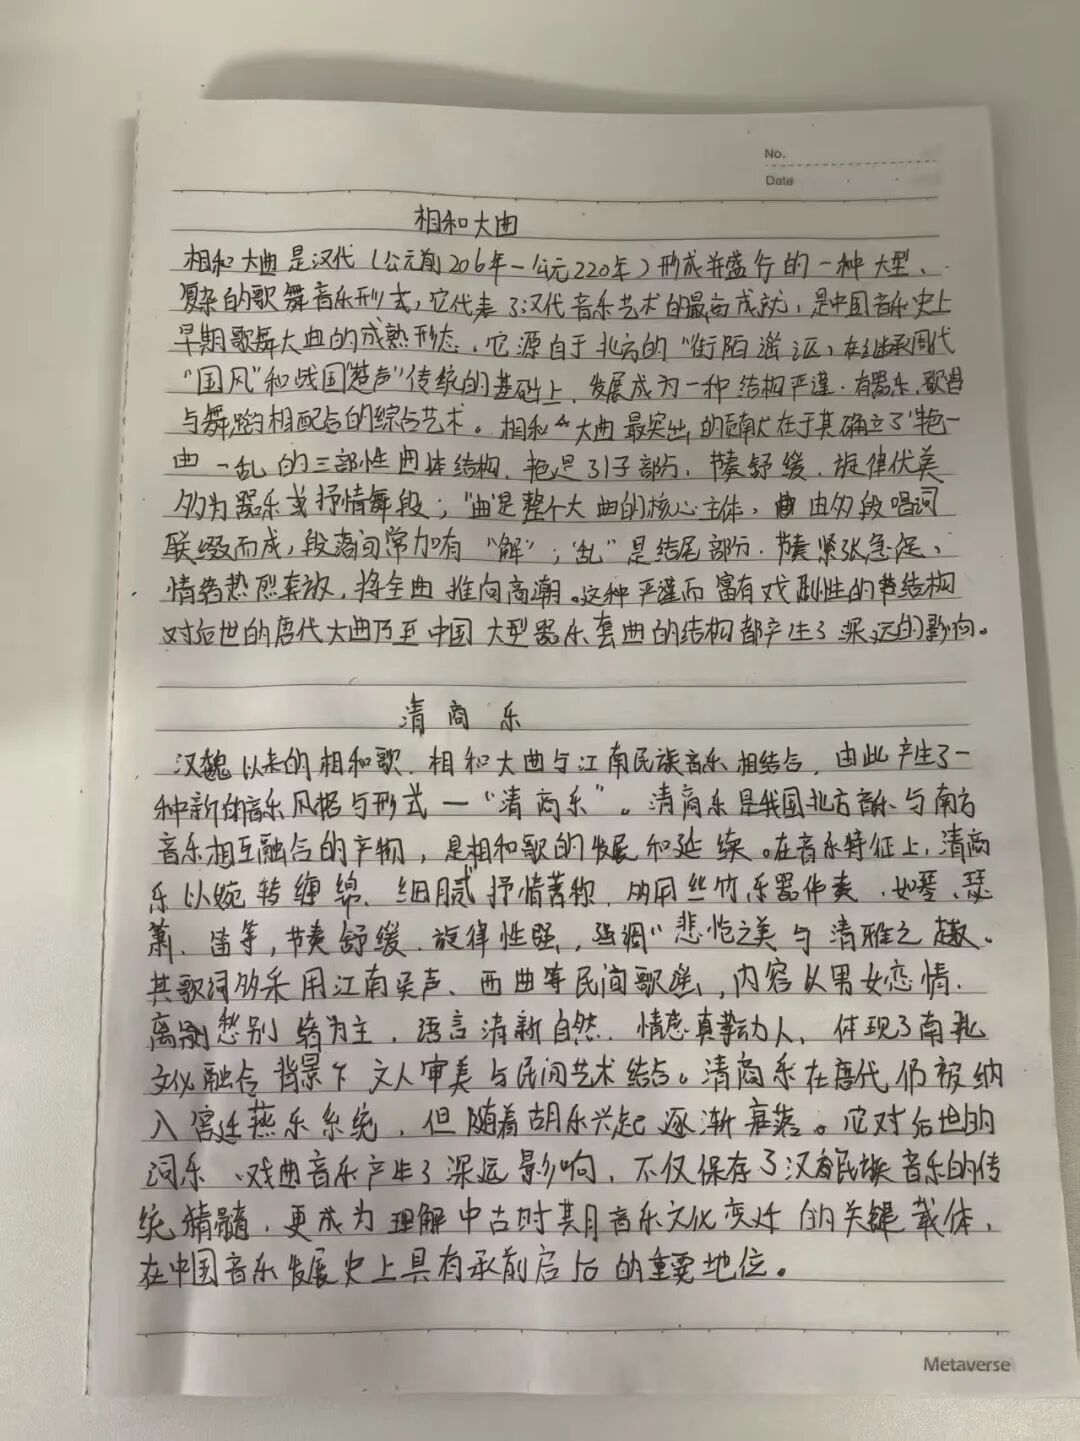 No.
Date
相和大曲
相和大曲是汉代(公元前206年-公元220年)形成并盛行的一种大型、
复杂的歌舞音乐形式,它代表了汉代音乐艺术的最高成就,是中国音乐史上
早期歌舞大曲的成熟形态。它源自于北方的"街陌谣讴,在继承周代
"国风"和战国"楚声"传统的基础上,发展成为一种结构严谨.有器乐、歌唱
与舞蹈相配合的综合艺术。相和大曲最突出的贡献在于其确立了"艳一
曲一乱的三部性曲体结构.艳是引子部分,节奏舒缓.旋律优美
多为器乐或抒情舞段;"曲"是整个大曲的核心主体,由多段唱词
联缀而成,段落间常加有"解";"乱"是结尾部分.节奏紧张急促、
情绪热烈奔放,将全曲推向高潮。这种严谨而富有戏剧性的结构
对后世的唐代大曲乃至中国大型器乐套曲的结构都产生了深远的影响。
清商乐
汉魏以来的相和歌.相和大曲与江南民族音乐相结合,由此产生了一
种新的音乐风格与形式一"清商乐"。清商乐是我国北方音乐与南方
音乐相互融合的产物,是相和歌的发展和延续。在音乐特征上,清商
乐以婉转缠绵、细腻抒情著称,多用丝竹乐器伴奏.如琴、瑟
萧、笛等,节奏舒缓.旋律性强,强调"悲怆之美与清雅之趣。
其歌词多采用江南吴声、西曲等民间歌谣,内容以男女恋情.
离别愁别绪为主,语言清新自然.情感真挚动人,体现了南北
文化融合背景下文人审美与民间艺术结合。清商乐在唐代仍被纳
入宫廷燕乐系统,但随着胡乐兴起逐渐衰落。它对后世的
词乐、戏曲音乐产生了深远影响,不仅保存了汉民族音乐的传
统精髓,更成为理解中古时其月音乐文化变迁的关键载体,
在中国音乐发展史上具有承前启后的重要地位。
Metaverse